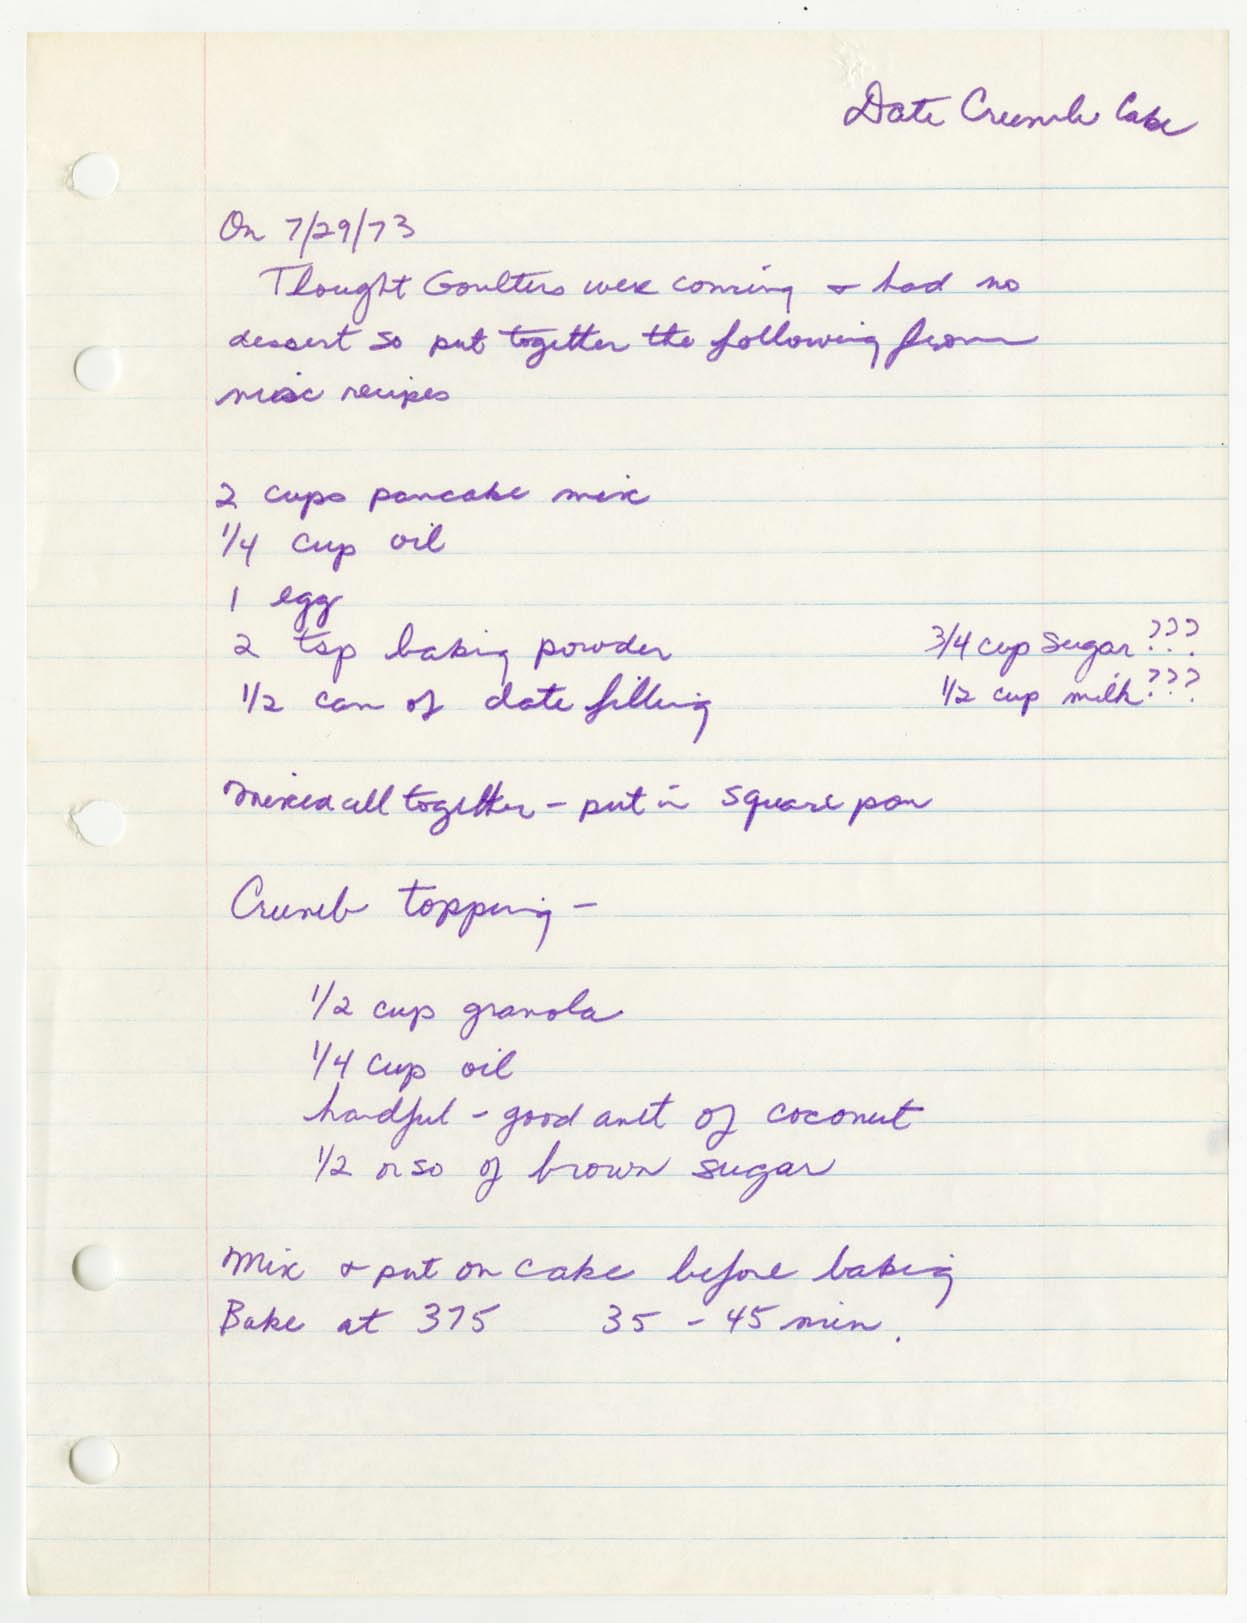 Date Crumb Cake
On 7/29/73
Thought Goulters were coming & had no
dessert so put together the following from
misc recipes
2 cups pancake mix
1/4 cup oil
1 egg
2 tsp baking powder
3/4 cup sugar ???
1/2 can of date filling
1/2 cup milk ???
Mixed all together - put in square pan
Crumb topping -
1/2 cup granola
1/4 cup oil
handful - good amt of coconut
1/2 or so of brown sugar
Mix & put on cake before baking
Bake at 375 35 - 45 min.